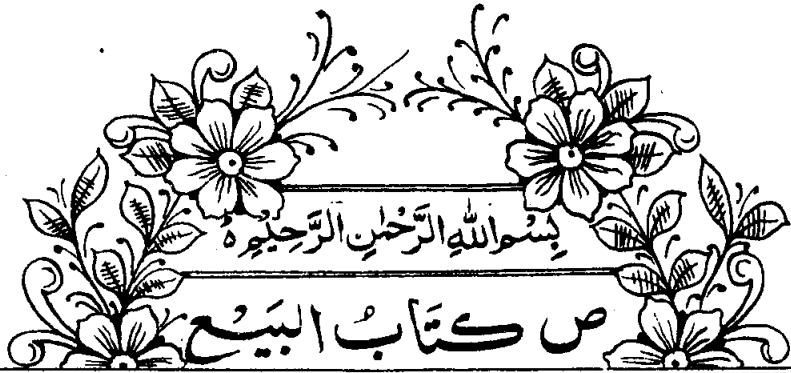 بِسْمِ اللهِ الرَّحْمٰنِ الرَّحِيْمِ ٥
ص كتَابُ البَيْع